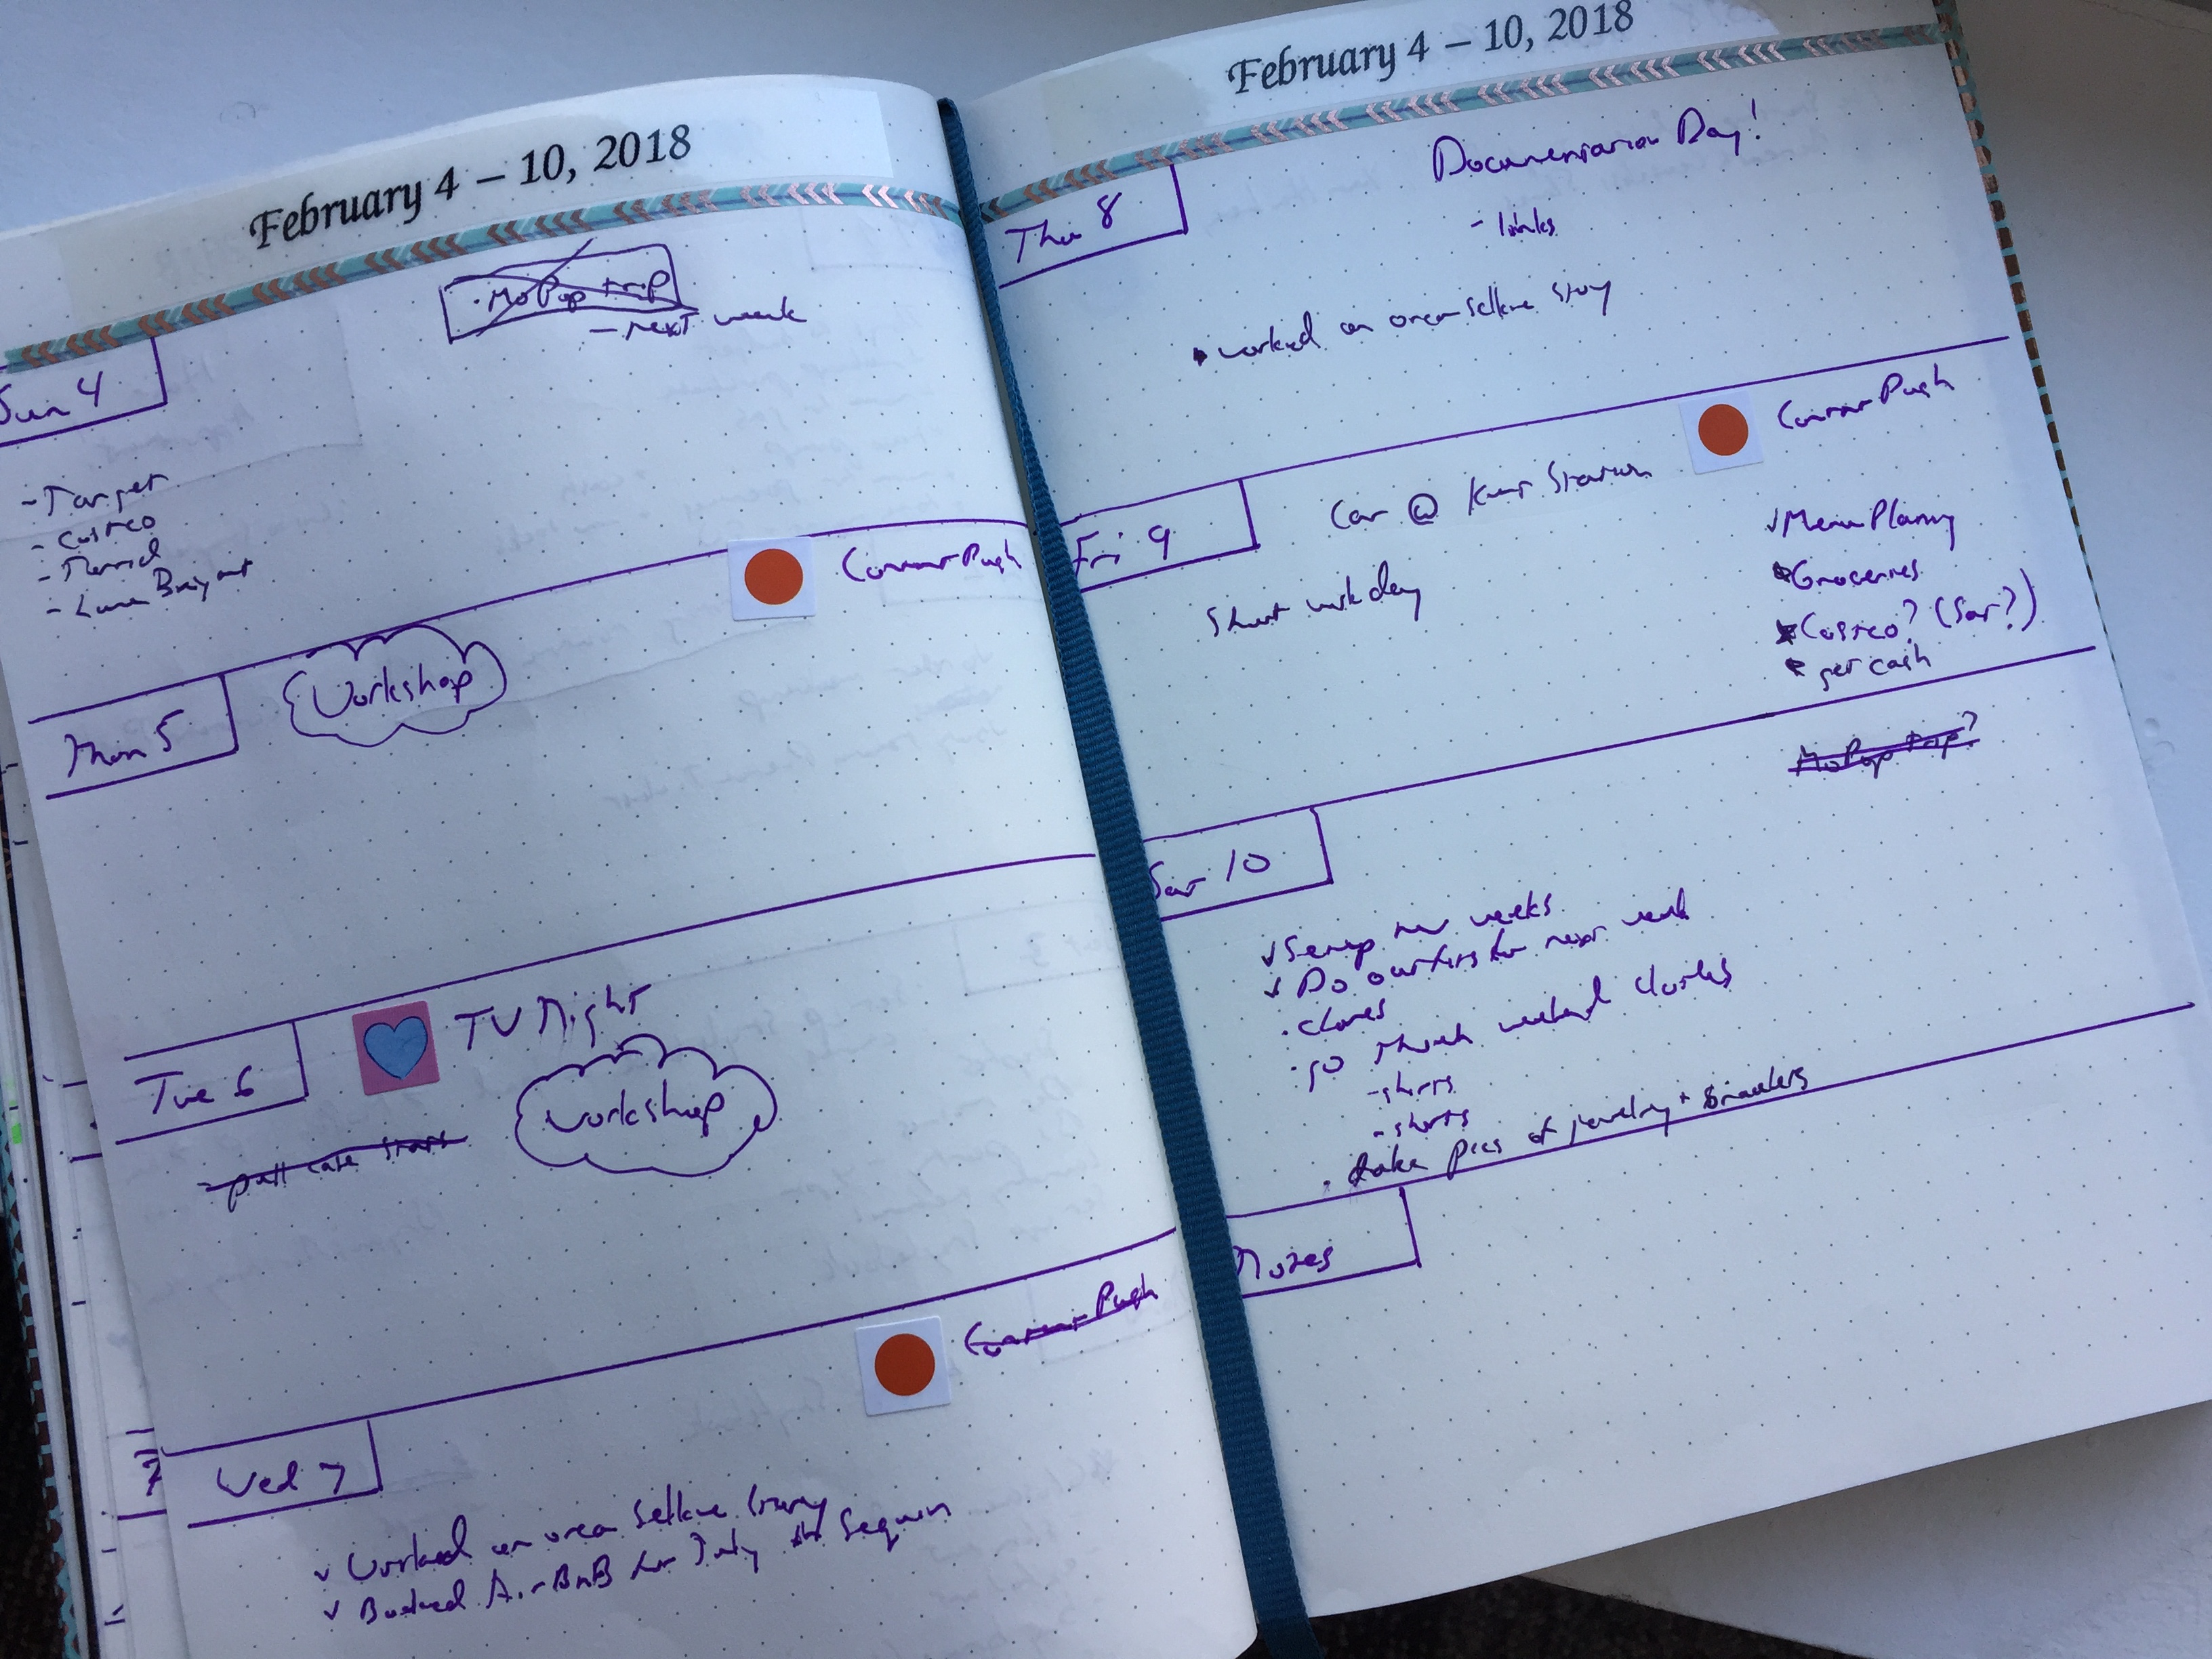 February 4 – 10, 2018
MoPop trip
– next week
Sun 4
- Target
- Costco
- Lane Bryant
Content Push
Mon 5
Workshop
Tue 6
TV Night
Workshop
- pull case stats
Content Push
Wed 7
✓ Worked on orca selkie story
✓ Booked AirBnB for July in Sequim
February 4 – 10, 2018
Thu 8
Documentarian Day!
- links
• worked on orca selkie story
Content Push
Fri 9
Car @ Kent Station
Short work day
✓ Menu Planning
Groceries
Costco? (Sat?)
get cash
MoPop trip?
Sat 10
✓ Setup new weeks
✓ Do outfits for next week
· go through weekend clothes
- shirts
- shorts
· take pics of jewelry + bracelets
Notes